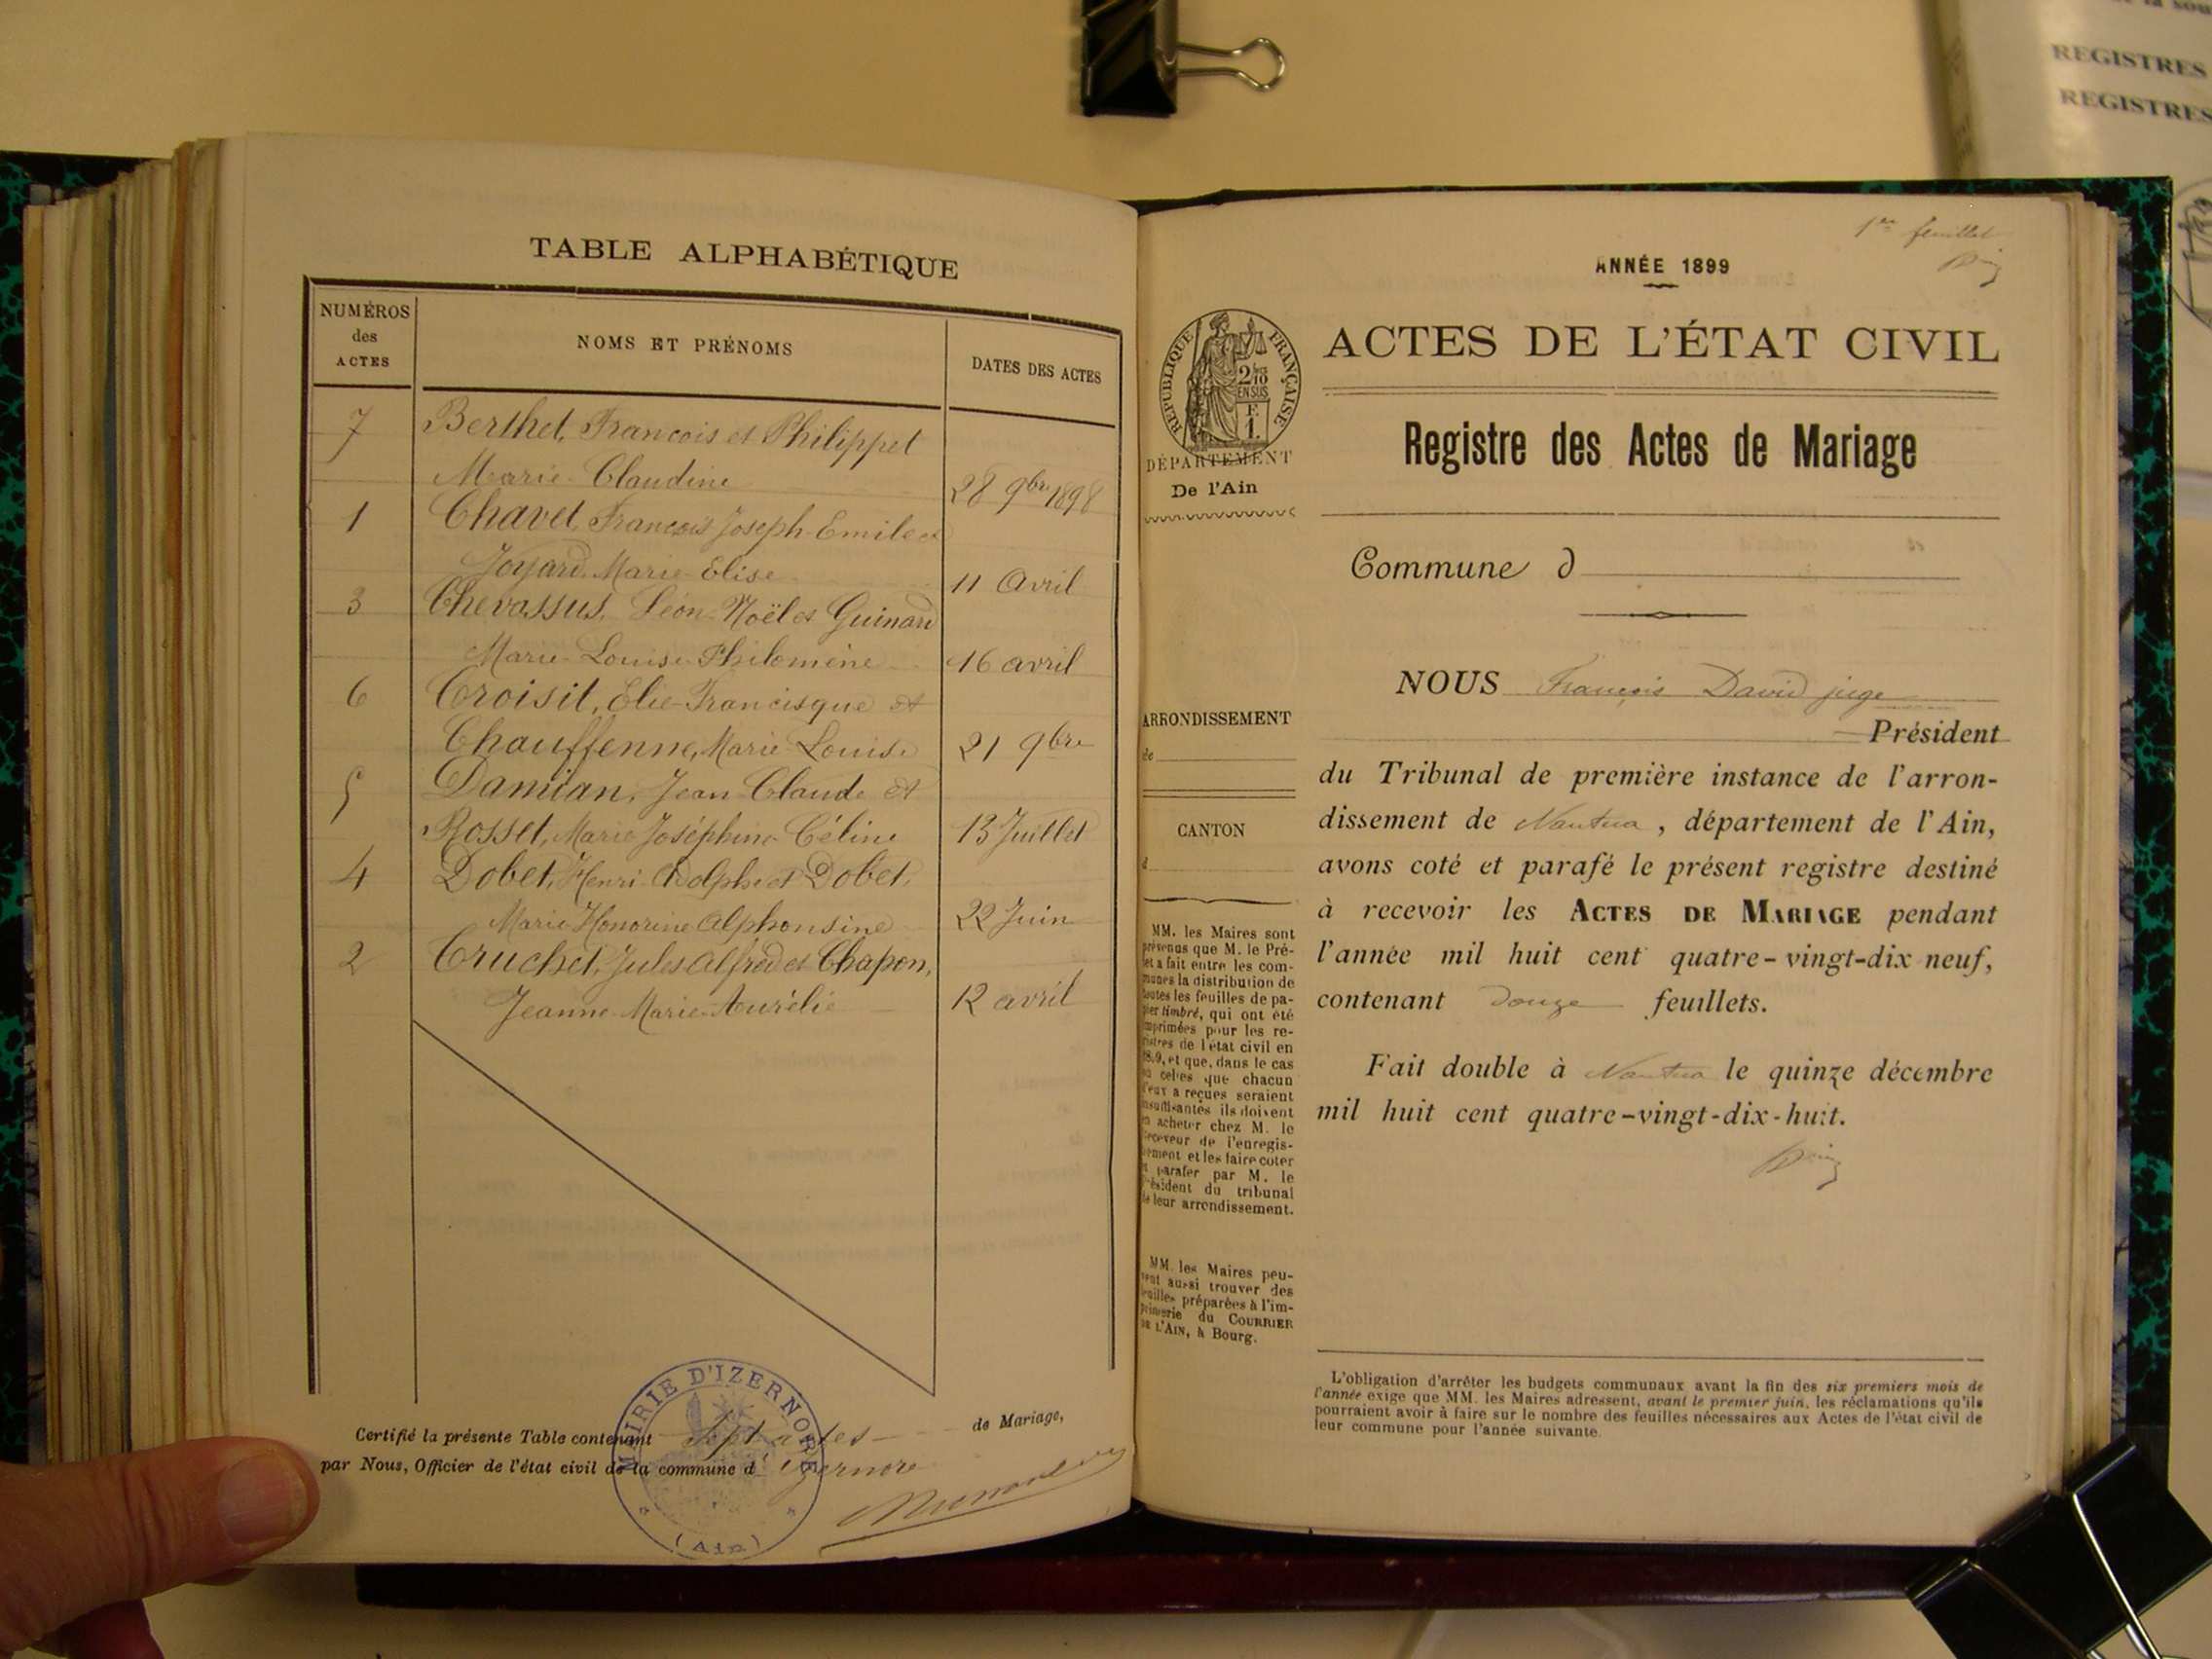 REGISTRES
REGISTRES
TABLE ALPHABÉTIQUE
NUMÉROS
des
ACTES
NOMS ET PRÉNOMS
DATES DES ACTES
7 Berthet, François et Philippet
Marie-Claudine 28 9bre 1898
1 Chavet, François Joseph-Emile et
Joyard Marie-Elise 11 Avril
3 Chevassus, Léon-Noël et Guinard
Marie-Louise-Philomène 16 avril
6 Croisit, Elie-Francisque et
Chauffenne, Marie-Louise 21 9bre
5 Damian, Jean-Claude et
Rosset, Marie-Joséphine-Céline 13 Juillet
4 Dobet, Henri-Adolphe et Dobet,
Marie Honorine Alphonsine 22 Juin
2 Cruchet, Jules Alfred et Chapon,
Jeanne-Marie-Aurélie 12 avril
Certifié la présente Table contenant Sept actes de Mariage,
par Nous, Officier de l'état civil de la commune d'Izernore
MAIRIE D'IZERNORE
(Ain)
1er feuillet
ANNÉE 1899
RÉPUBLIQUE FRANÇAISE
2/10
EN SUS
F.
1.
DÉPARTEMENT
De l'Ain
ARRONDISSEMENT
de
CANTON
d
MM. les Maires sont
prévenus que M. le Pré-
fet a fait entre les com-
munes la distribution de
toutes les feuilles de pa-
pier timbré, qui ont été
imprimées pour les re-
gistres de l'état civil en
1899, et que, dans le cas
où celles que chacun
d'eux a reçues seraient
insuffisantes ils doivent
en acheter chez M. le
Receveur de l'enregis-
trement et les faire coter
et parafer par M. le
Président du tribunal
de leur arrondissement.
MM. les Maires peu-
vent aussi trouver des
feuilles préparées à l'im-
primerie du COURRIER
DE L'AIN, à Bourg.
ACTES DE L'ÉTAT CIVIL
Registre des Actes de Mariage
Commune d
NOUS François David juge
Président
du Tribunal de première instance de l'arron-
dissement de Nantua, département de l'Ain,
avons coté et parafé le présent registre destiné
à recevoir les ACTES DE MARIAGE pendant
l'année mil huit cent quatre-vingt-dix neuf,
contenant Douze feuillets.
Fait double à Nantua le quinze décembre
mil huit cent quatre-vingt-dix-huit.
L'obligation d'arrêter les budgets communaux avant la fin des six premiers mois de
l'année exige que MM. les Maires adressent, avant le premier juin, les réclamations qu'ils
pourraient avoir à faire sur le nombre des feuilles nécessaires aux Actes de l'état civil de
leur commune pour l'année suivante.